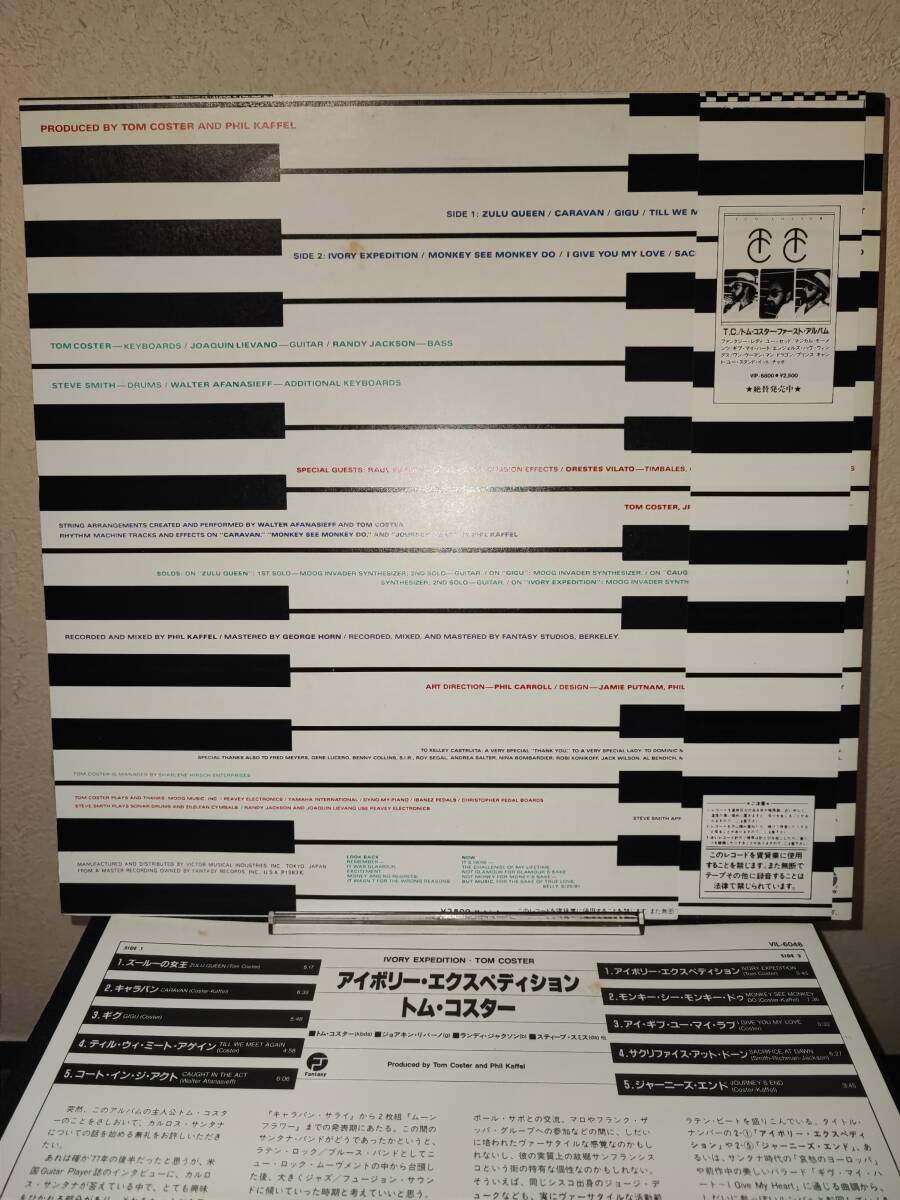 PRODUCED BY TOM COSTER AND PHIL KAFFEL
SIDE 1: ZULU QUEEN / CARAVAN / GIGU / TILL WE M
SIDE 2: IVORY EXPEDITION / MONKEY SEE MONKEY DO / I GIVE YOU MY LOVE / SAC
TOM COSTER—KEYBOARDS / JOAQUIN LIEVANO—GUITAR / RANDY JACKSON—BASS
STEVE SMITH—DRUMS / WALTER AFANASIEFF—ADDITIONAL KEYBOARDS
SPECIAL GUESTS: RAUL EFFECTS / ORESTES VILATO—TIMBALES,
TOM COSTER, JR
STRING ARRANGEMENTS CREATED AND PERFORMED BY WALTER AFANASIEFF AND TOM COSTER
RHYTHM MACHINE TRACKS AND EFFECTS ON "CARAVAN," "MONKEY SEE MONKEY DO," AND BY PHIL KAFFEL
SOLOS: ON "ZULU QUEEN": 1ST SOLO—MOOG INVADER SYNTHESIZER, 2ND SOLO—GUITAR. / ON "GIGU": MOOG INVADER SYNTHESIZER. / ON "CAUG
SYNTHESIZER, 2ND SOLO—GUITAR. / ON "IVORY EXPEDITION": MOOG INVADER SYNTH
RECORDED AND MIXED BY PHIL KAFFEL / MASTERED BY GEORGE HORN / RECORDED, MIXED, AND MASTERED BY FANTASY STUDIOS, BERKELEY.
ART DIRECTION—PHIL CARROLL / DESIGN—JAMIE PUTNAM, PHIL
TO KELLEY CASTRUITA: A VERY SPECIAL "THANK YOU," TO A VERY SPECIAL LADY. TO DOMINIC
SPECIAL THANKS ALSO TO FRED MEYERS, GENE LUCERO, BENNY COLLINS, S.I.R., ROY SEGAL, ANDREA SALTER, NINA BOMBARDIER, ROBI KONIKOFF, JACK WILSON, AL BENDICH,
TOM COSTER IS MANAGED BY SHARLENE HIRSCH ENTERPRISES
TOM COSTER PLAYS AND THANKS: MOOG MUSIC, INC. / PEAVEY ELECTRONICS / YAMAHA INTERNATIONAL / DYNO-MY-PIANO / IBANEZ PEDALS / CHRISTOPHER PEDAL BOARDS
STEVE SMITH PLAYS SONOR DRUMS AND ZILDJIAN CYMBALS. / RANDY JACKSON AND JOAQUIN LIEVANO USE PEAVEY ELECTRONICS.
STEVE SMITH APP
MANUFACTURED AND DISTRIBUTED BY VICTOR MUSICAL INDUSTRIES, INC. TOKYO, JAPAN
FROM A MASTER RECORDING OWNED BY FANTASY RECORDS, INC., U.S.A.
LOOK BACK
REMEMBER—
IT WAS GLAMOUR,
EXCITEMENT,
MONEY AND NO REGRETS;
IT WASN'T FOR THE WRONG REASONS
NOW
IT'S NEW—
THE CHALLENGE OF MY LIFETIME
NOT GLAMOUR FOR GLAMOUR'S SAKE
NOT MONEY FOR MONEY'S SAKE—
BUT MUSIC, FOR THE SAKE OF TRUE LOVE.
T.C./トム・コスター・ファースト・アルバム
VIP-6600●¥2,500
★絶賛発売中★
●ご注意●
このレコードを賃貸業に使用
することを禁じます。また無断で
テープその他に録音することは
法律で禁じられています。
VIL-6046
SIDE 1
IVORY EXPEDITION・TOM COSTER
SIDE 2
アイボリー・エクスペディション
トム・コスター
1.ズールーの女王 ZULU QUEEN (Tom Coster) 5:17
2.キャラバン CARAVAN (Coster-Kaffel) 6:39
3.ギグ GIGU (Coster) 5:46
4.ティル・ウィ・ミート・アゲイン TILL WE MEET AGAIN (Coster) 4:58
5.コート・イン・ジ・アクト CAUGHT IN THE ACT (Walter Afanasieff) 6:06
■トム・コスター(kbds) ■ジョアキン・リバーノ(g) ■ランディ・ジャクソン(b) ■スティーブ・スミス(ds) 他
Fantasy
Produced by Tom Coster and Phil Kaffel
1.アイボリー・エクスペディション IVORY EXPEDITION (Tom Coster) 5:45
2.モンキー・シー・モンキー・ドゥ MONKEY SEE MONKEY DO (Coster-Kaffel) 7:36
3.アイ・ギブ・ユー・マイ・ラブ I GIVE YOU MY LOVE (Coster) 5:33
4.サクリファイス・アット・ドーン SACRIFICE AT DAWN (Smith-Richman-Jackson) 6:27
5.ジャーニーズ・エンド JOURNEY'S END (Coster) 3:45
突然、このアルバムの主人公トム・コスタ
ーのことをさしおいて、カルロス・サンタナ
についての話を始める無礼をお許しいただき
たい。
あれは確か'77年の後半だったと思うが、米
国Guitar Player誌のインタビューに、カルロ
ス・サンタナが答えている中で、とても興味
『キャラバン・サライ』から2枚組『ムーン
フラワー』までの発表期にあたる。この間の
サンタナ・バンドがどうであったかというと、
ラテン・ロック／ブルース・バンドとしてニ
ュー・ロック・ムーヴメントの中から台頭し
た後、大きくジャズ／フュージョン・サウン
ドに傾いていった時期と考えていいと思う。
ポール・サポとの交流、マロやフランク・ザ
ッパ・グループへの参加などの間に、しだい
に培われたヴァーサタイルな感覚なのかもし
れないし、彼の実質上の故郷サンフランシス
コという街の特有な個性なのかもしれない。
そういえば、同じシスコ出身のジョージ・デ
ュークなども、実にヴァーサタイルな活動範
ラテン・ビートを盛りこんでいる。タイトル・
ナンバーの2-①「アイボリー・エクスペディ
ション」や2-⑤「ジャーニーズ・エンド」、あ
るいは、サンタナ時代の「哀愁のヨーロッパ」
や前作中の美しいバラード「ギヴ・マイ・ハ
ート～I Give My Heart」に通じる曲調から、